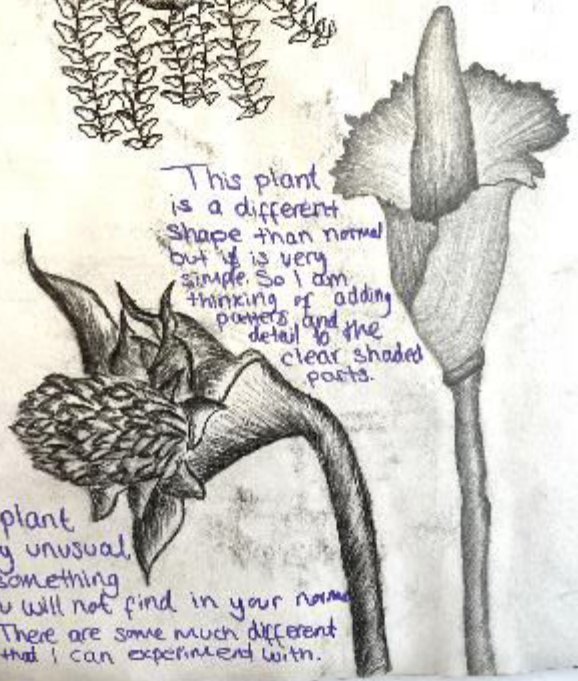 This plant
is a different
shape than normal
but it is very
simple. So I am
thinking of adding
and
detail to the
clear shaded
parts.
plant
y unusual,
something
u will not find in your
There are some much different
that I can experiment with.